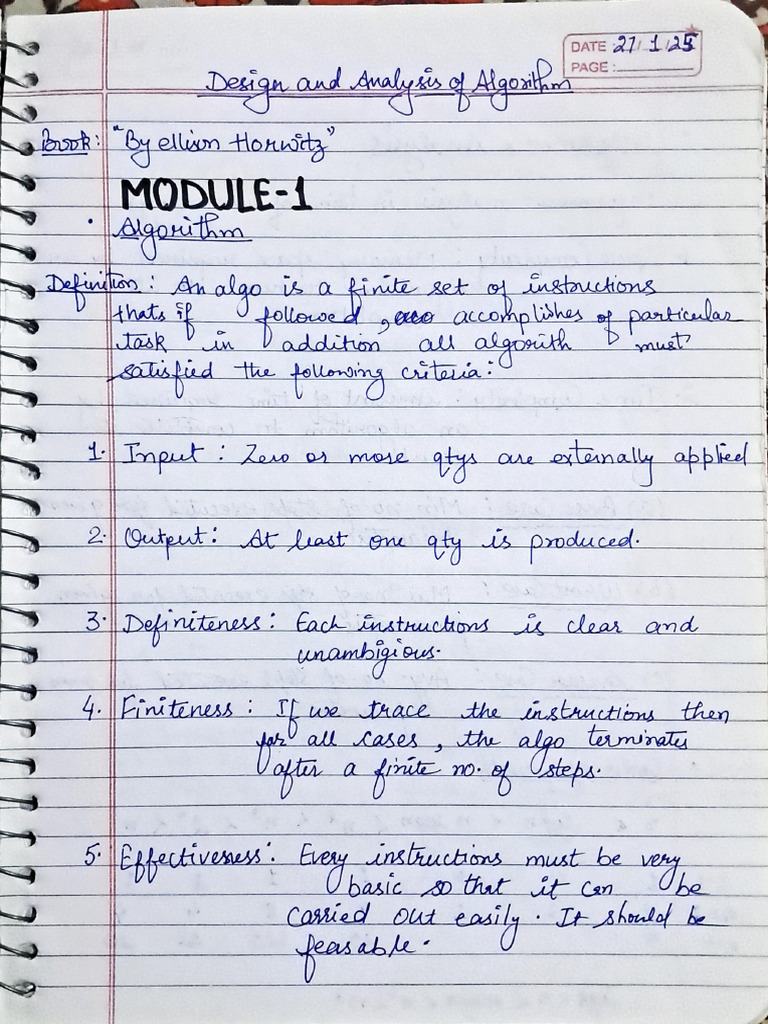 DATE : 27/1/25
PAGE :
Design and Analysis of Algorithm
Book: "By ellison Horwitz"
MODULE-1
• Algorithm
Definition: An algo is a finite set of instructions
thats if followed, accomplishes of particular
task in addition all algorith must
satisfied the following criteria:
1. Input : Zero or more qtys are externally applied
2. Output: At least one qty is produced.
3. Definiteness: Each instructions is clear and
unambigious.
4. Finiteness : If we trace the instructions then
for all cases, the algo terminates
after a finite no. of steps.
5. Effectiveness: Every instructions must be very
basic so that it can be
carried out easily. It should be
feasable.